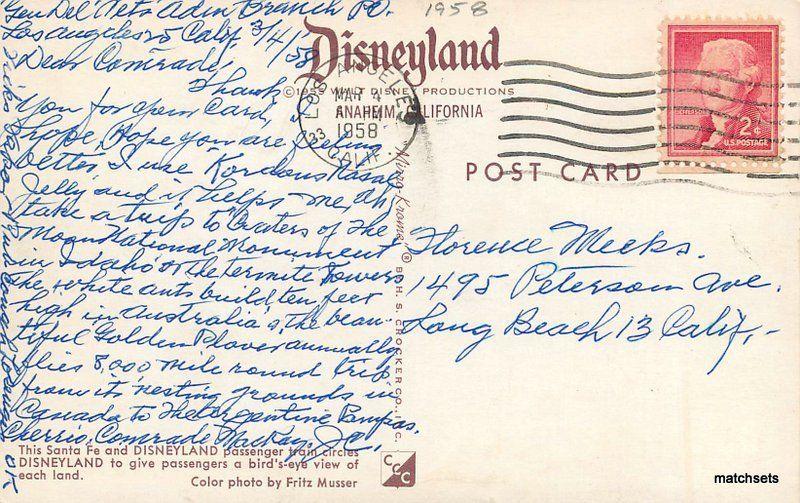 Gen Del Vets Adm Branch P.O.
Los Angeles 25 Calif, 3/4/58
Dear Comrade, Thank
you for open card, I
hope, Hope you are feeling
better, I use Kondons Nasal
Jelly and it helps me, Oh,
take a trip to Craters of the
Moon National Monument
in Idaho or the termite Towers
The white ants build ten feet
high in Australia or, the beau-
tiful Golden Plover annually
flies 8,000 mile round trip
from its nesting grounds in
Canada to the Argentine Pampas.
Cherrio, Comrade Mackay, J.C.,
1958
Disneyland
© 1955 WALT DISNEY PRODUCTIONS
ANAHEIM, CALIFORNIA
LOS ANGELES
MAR 4
1958
23 CALIF.
2¢
U.S. POSTAGE
POST CARD
"Mirro-Krome" ® BY H. S. CROCKER CO., INC.
Florence Meeks.
1495 Peterson Ave.
Long Beach 13 Calif,-
This Santa Fe and DISNEYLAND passenger train circles
DISNEYLAND to give passengers a bird's-eye view of
each land.
Color photo by Fritz Musser
CCC
matchsets